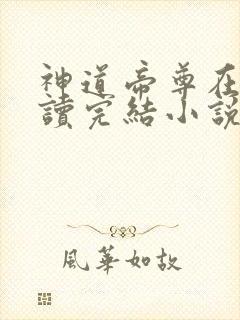 神道帝尊在
讀完結小說
風華如故